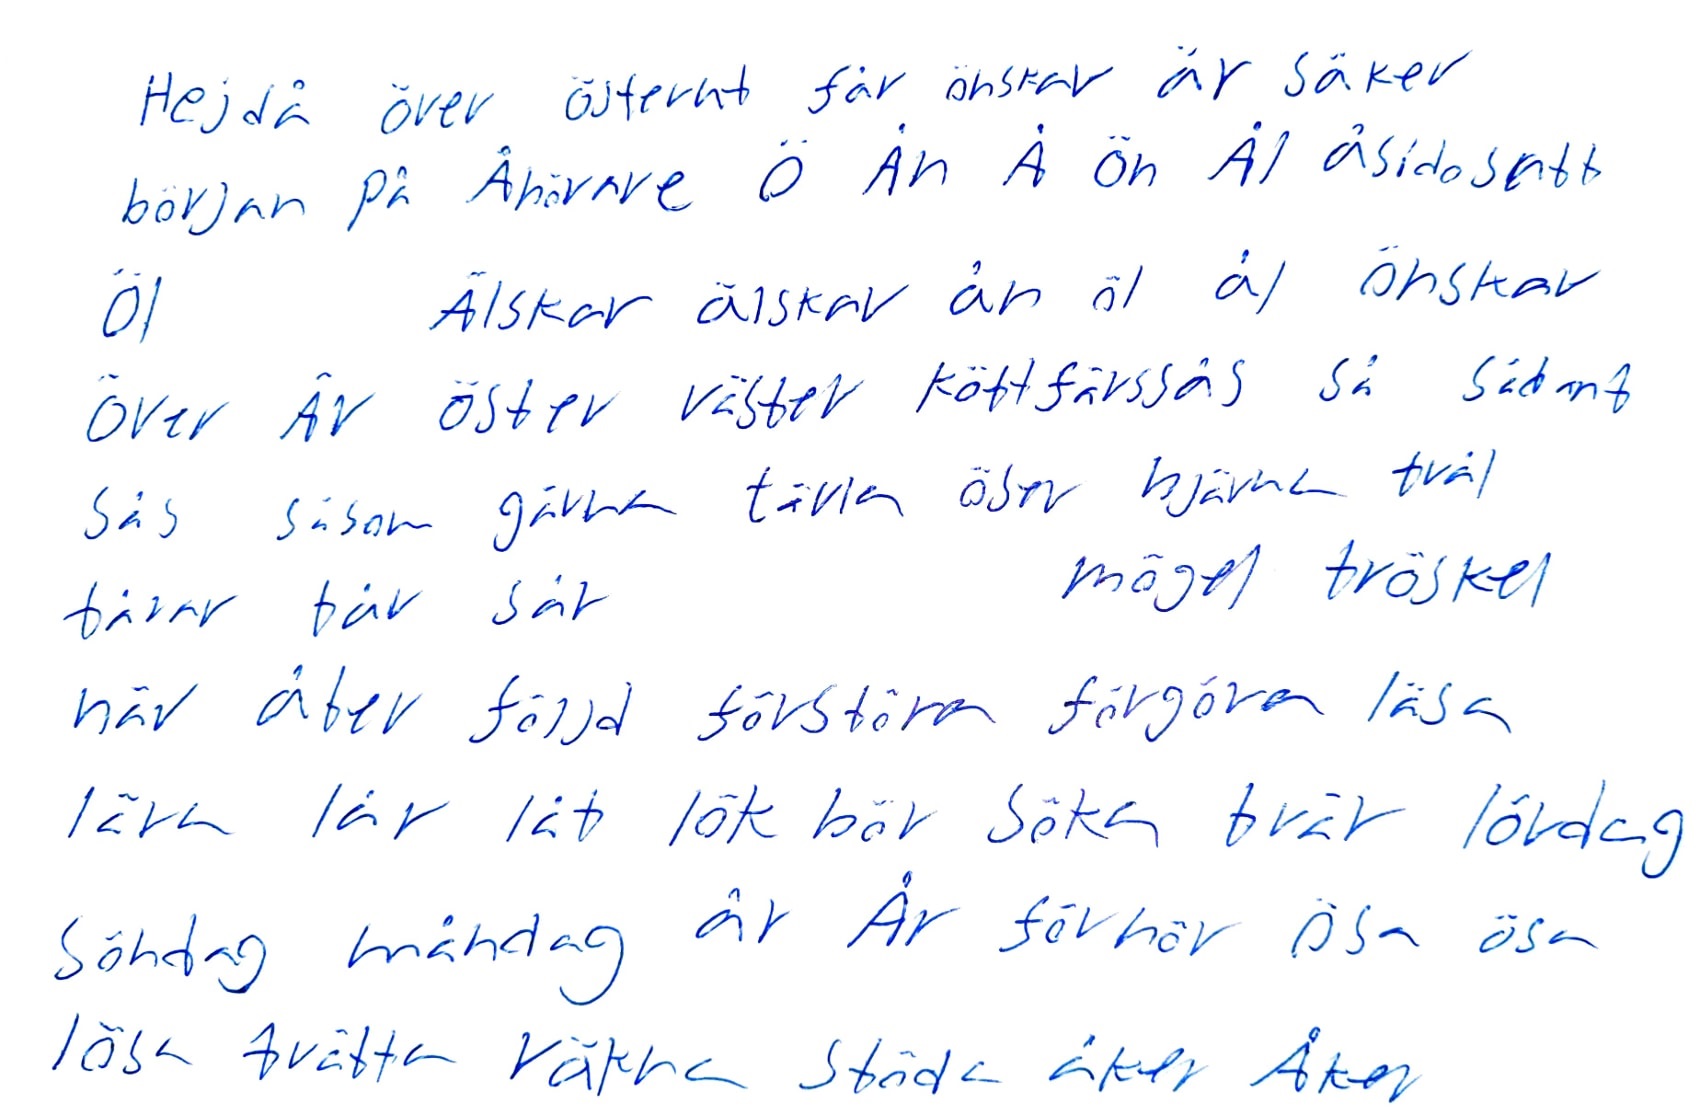 Hejdå över österut får önskar är säker
början på Åhörare Ö Ån Å Ön Ål åsidosatt
Öl Älskar älskar ån öl ål önskar
Över År öster väster köttfärssås så sådant
sås såsom gärna tävla öser hjärna tvål
tårar tår sår mögel tröskel
när åter följd förstöra förgöra läsa
lära lår låt lök bör söka tvär lördag
söndag måndag år År förhör Ösa ösa
lösa tvätta räkna städa åker Åker